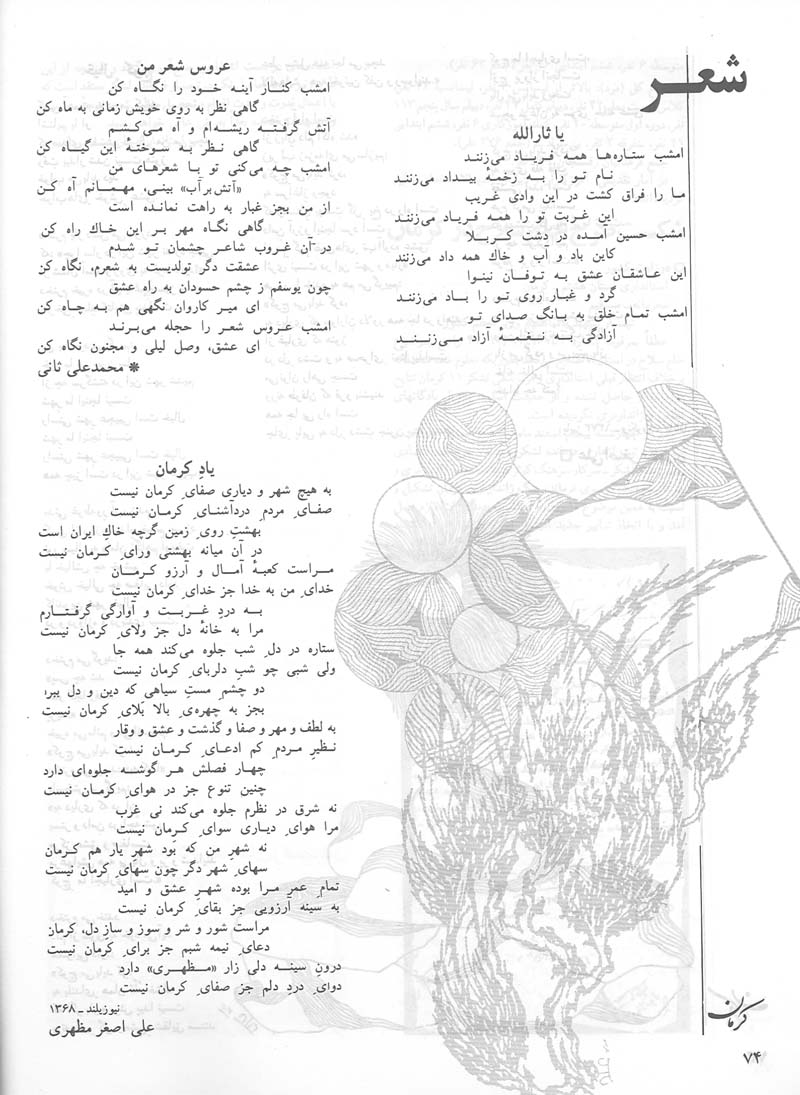 شعر
یا ثارالله
امشب ستاره‌ها همه فریاد می‌زنند
نام تو را به زخمهٔ بیداد می‌زنند
ما را فراق کشت در این وادی غریب
این غربت تو را همه فریاد می‌زنند
امشب حسین آمده در دشت کربلا
کاین باد و آب و خاك همه داد می‌زنند
این عاشقان عشق به توفان نینوا
گرد و غبار روی تو را باد می‌زنند
امشب تمام خلق به بانگ صدای تو
آزادگی به نغمهٔ آزاد می‌زنند
عروس شعر من
امشب کنار آینه خود را نگاه کن
گاهی نظر به روی خویش زمانی به ماه کن
آتش گرفته ریشه‌ام و آه می‌کشم
گاهی نظر به سوختهٔ این گیاه کن
امشب چه می‌کنی تو با شعرهای من
«آتش‌برآب» بینی، مهمانم آه کن
از من بجز غبار به راهت نمانده است
گاهی نگاه مهر بر این خاك راه کن
در آن غروب شاعر چشمان تو شدم
عشقت دگر تولدیست به شعرم، نگاه کن
چون یوسفم ز چشم حسودان به راه عشق
ای میر کاروان نگهی هم به چاه کن
امشب عروس شعر را حجله می‌برند
ای عشق، وصل لیلی و مجنون نگاه کن
* محمدعلی ثانی
یادِ کرمان
به هیچ شهر و دیاری صفایِ کرمان نیست
صفایِ مردمِ دردآشنایِ کرمان نیست
بهشتِ رویِ زمین گرچه خاكِ ایران است
در آن میانه بهشتی ورای کرمان نیست
مراست کعبهٔ آمال و آرزو کرمان
خدای من به خدا جز خدای کرمان نیست
به دردِ غربت و آوارگی گرفتارم
مرا به خانهٔ دل جز ولای کرمان نیست
ستاره در دلِ شب جلوه می‌کند همه جا
ولی شبی چو شبِ دلربای کرمان نیست
دو چشمِ مستِ سیاهی که دین و دل ببرد
بجز به چهره‌یِ بالا بَلای کرمان نیست
به لطف و مهر و صفا و گذشت و عشق و وقار
نظیرِ مردمِ کم ادعایِ کرمان نیست
چهار فصلش هر گوشه جلوه‌ای دارد
چنین تنوع جز در هوای کرمان نیست
نه شرق در نظرم جلوه می‌کند نی غرب
مرا هوای دیاری سوای کرمان نیست
نه شهرِ من که بُود شهرِ یار هم کرمان
سهای شهر دگر چون سهایِ کرمان نیست
تمامِ عمرِ مرا بوده شهرِ عشق و امید
به سینه آرزویی جز بقایِ کرمان نیست
مراست شور و شر و سوز و سازِ دل، کرمان
دعایِ نیمه شبم جز برایِ کرمان نیست
درونِ سینه دلی زار «مظهری» دارد
دوایِ دردِ دلم جز صفایِ کرمان نیست
نیوزیلند ـ ۱۳۶۸
علی اصغر مظهری
کرمان
۷۴